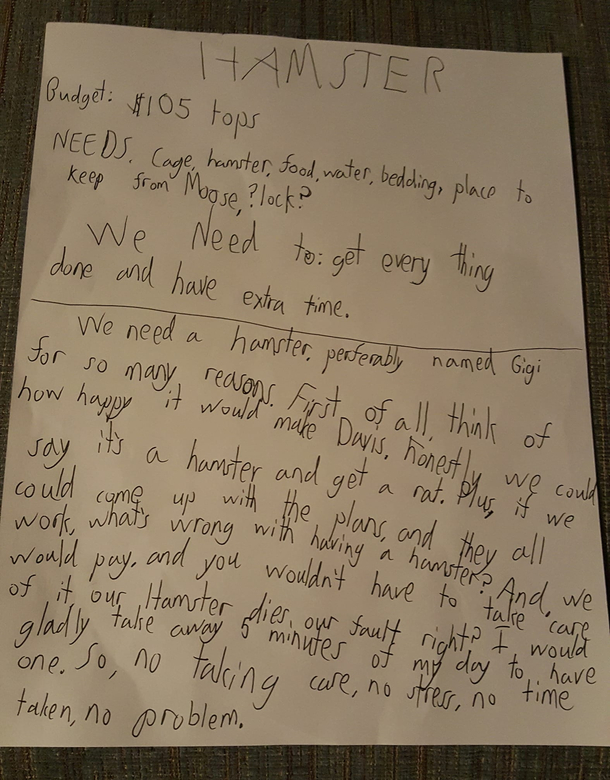 HAMSTER
Budget: $105 tops
NEEDS. Cage, hamster, food, water, bedding, place to
keep from Moose, ?lock?
We Need to: get every thing
done and have extra time.
We need a hamster, perferably named Gigi
for so many reasons. First of all, think of
how happy it would make Davis. Honestly we could
say it's a hamster and get a rat. Plus, if we
could come up with the plans, and they all
work, what's wrong with having a hamster? And, we
would pay, and you wouldn't have to take care
of it our Hamster dies, our fault right? I would
gladly take away 5 minutes of my day to have
one. So, no taking care, no stress, no time
taken, no problem.